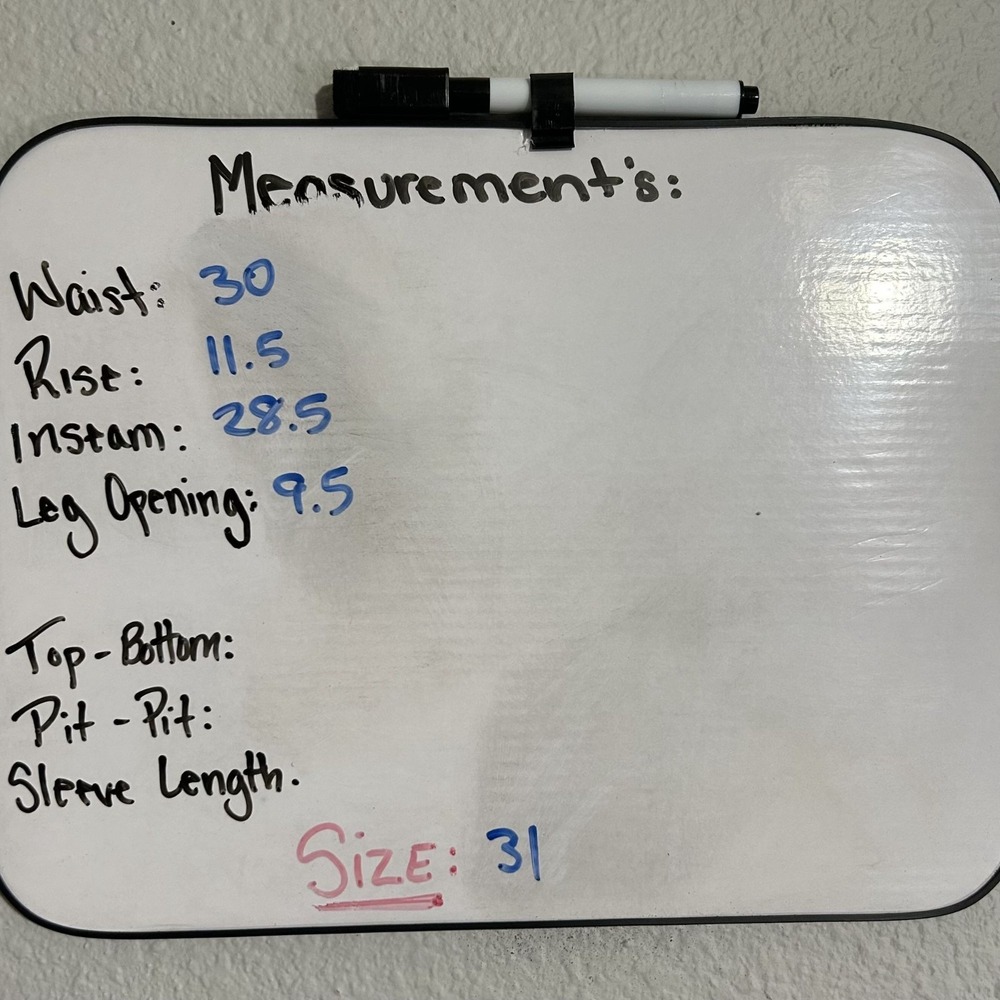 Measurement's:
Waist: 30
Rise: 11.5
Instam: 28.5
Leg Opening: 9.5
Top-Bottom:
Pit-Pit:
Sleeve Length.
Size: 31